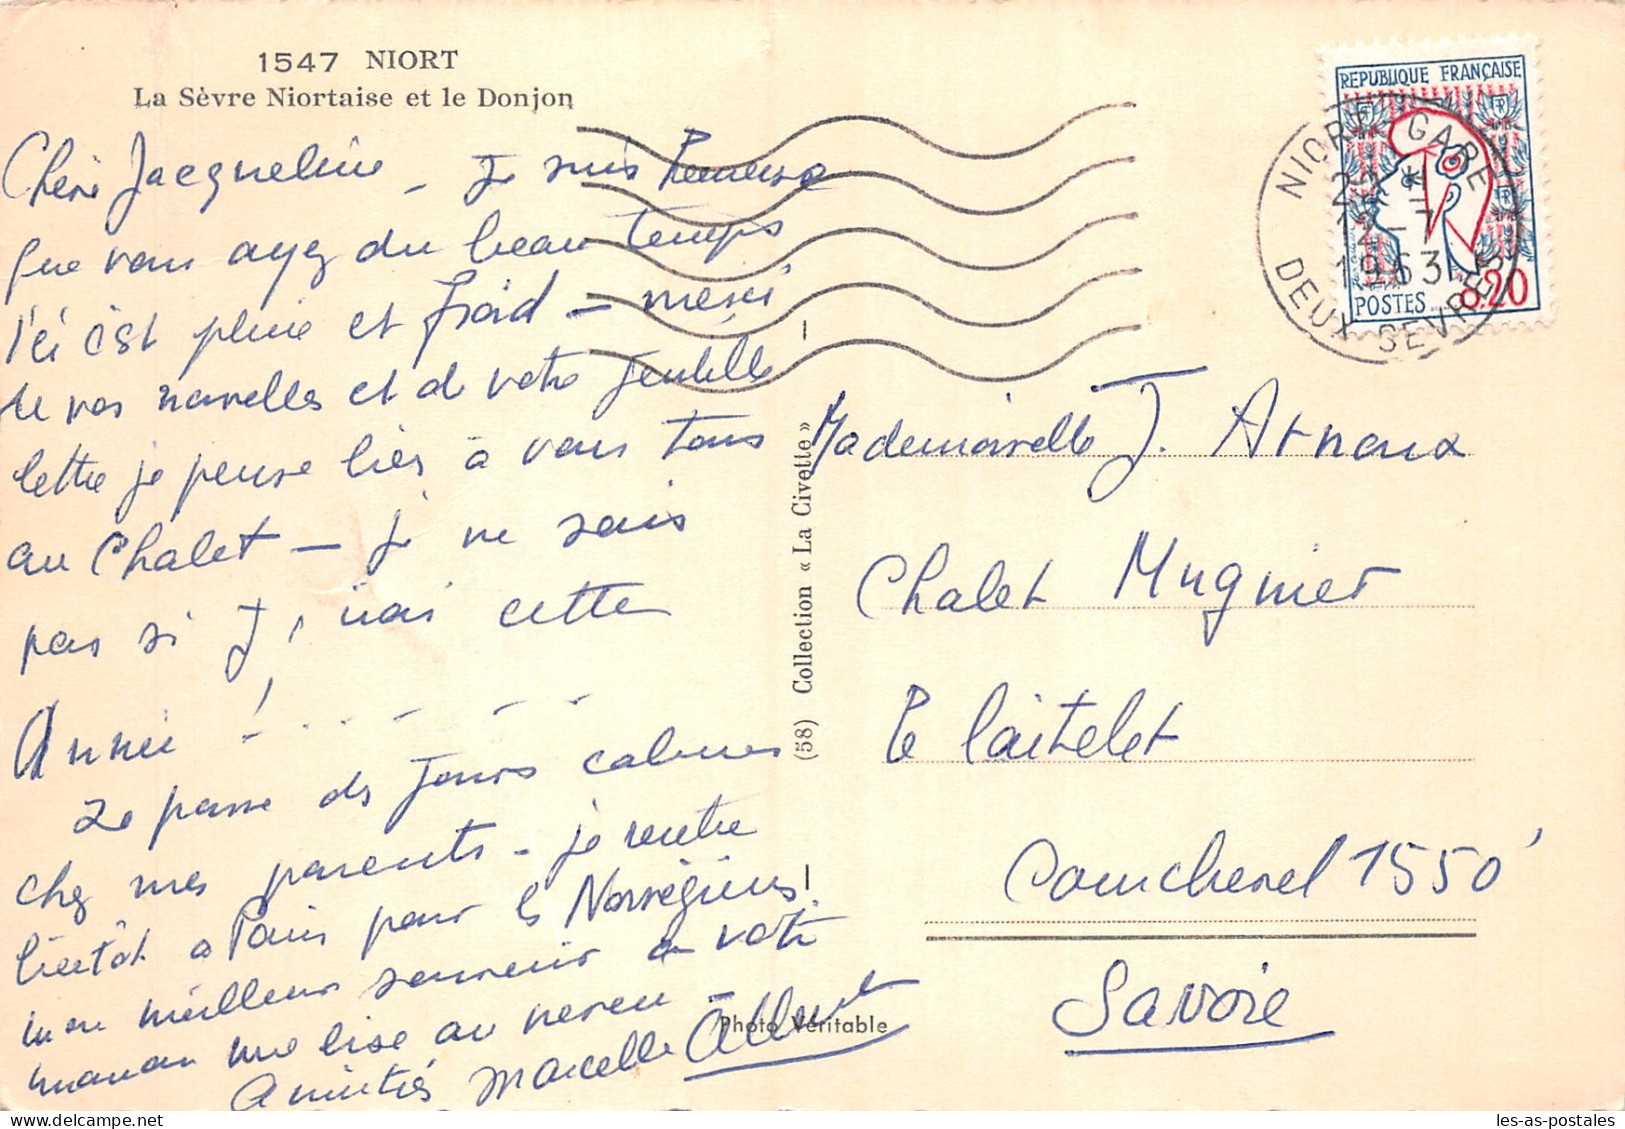 1547 NIORT
La Sèvre Niortaise et le Donjon
Chère Jacqueline - Je suis heureuse
que vous ayez du beau temps
Ici c'est pluie et froid - merci
de vos nouvelles et de votre gentille
lettre je pense bien à vous tous
au Chalet - je ne sais
pas si j'irai cette
Année !
Je passe des jours calmes
chez mes parents - je rentre
bientôt à Paris pour les Norvégiens.
mon meilleur souvenir à votre
maman une bise au neveu -
Amitiés Marcelle
Photo Véritable
(58) Collection « La Civette »
REPUBLIQUE FRANÇAISE
POSTES 0,20
NIORT-GARE
22 H
12-7
1963
DEUX-SEVRES
Mademoiselle J. Arnaux
Chalet Mugnier
Le Laitelet
Courchevel 1550
Savoie
les-as-postales